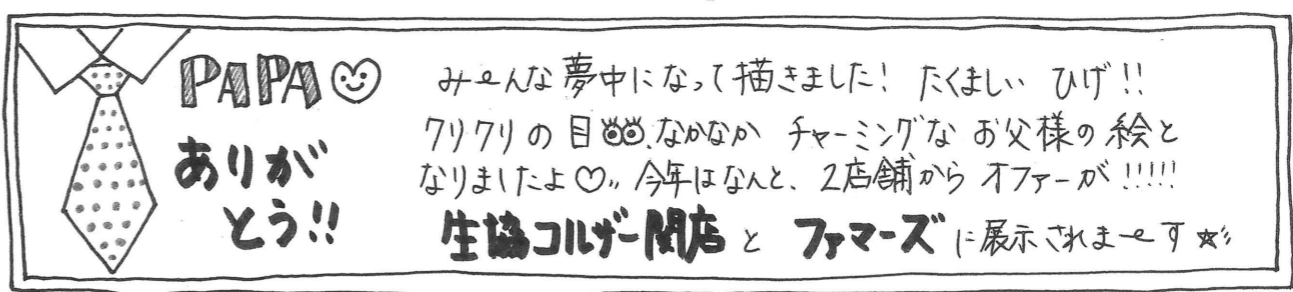 PAPA♡
ありが
とう!!
み〜んな夢中になって描きました! たくましい ひげ!!
クリクリの目 なかなか チャーミングな お父様の絵と
なりましたよ♡〃 今年はなんと、2店舗から オファーが !!!!!
生協コルザー関店 と ファマーズ に展示されま〜す☆